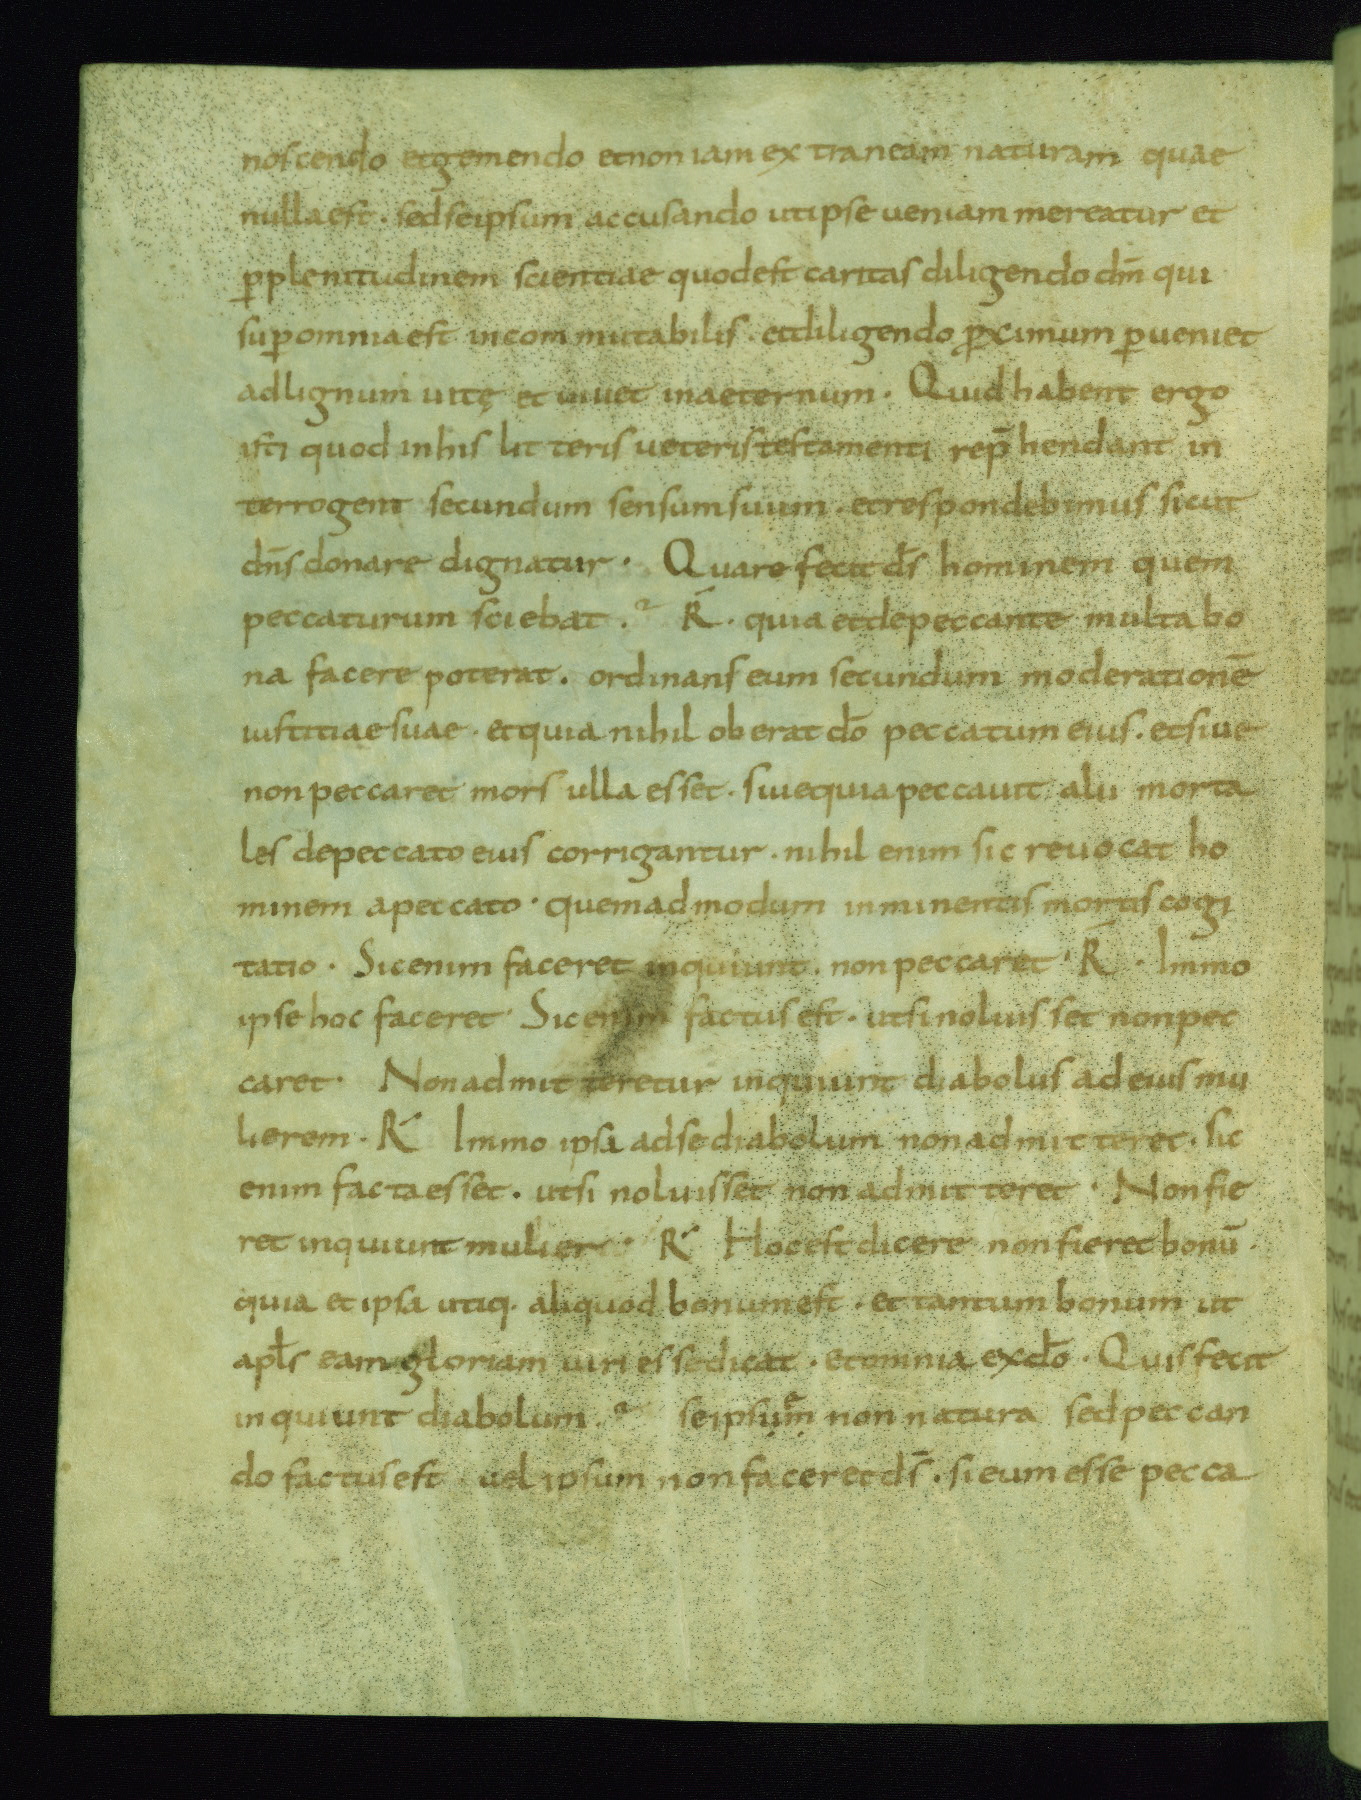 noscendo et gemendo et non iam extraneam naturam quae
nulla est · sed se ipsum accusando ut ipse ueniam mereatur et
p̄ plenitudinem scientiae quod est caritas diligendo dm̄ qui
sup̄ omnia est incommutabilis · et diligendo ꝓximum p̄ueniet
ad lignum uitę et uiuet in aeternum · Quid habent ergo
isti quod in his litteris ueteris testamenti rep̄hendant in
terrogent secundum sensum suum · et respondebimus sicut
dn̄s donare dignatur · Quare fecit ds̄ hominem quem
peccaturum sciebat ? R̄ · quia et de peccante multa bo
na facere poterat · ordinans eum secundum moderationē
iustitiae suae · et quia nihil oberat dō peccatum eius · et siue
non peccaret mors ulla esset · siue quia peccauit alii morta
les de peccato eius corrigantur · nihil enim sic reuocat ho
minem a peccato · quemadmodum inminentis mortis cogi
tatio · Sic enim faceret inquiunt · non peccaret · R̄ · Immo
ipse hoc faceret · Sic enim factus est · ut si noluisset non pec
caret · Non admitteretur inquiunt diabolus ad eius mu
lierem · R̄ Immo ipsa ad se diabolum non admitteret · sic
enim facta esset · ut si noluisset non admitteret · Non fie
ret inquiunt mulier · R̄ Hoc est dicere non fieret bonū ·
quia et ipsa utiq· aliquod bonum est · et tantum bonum ut
apl̄s eam gloriam uiri esse dicat · et omnia ex dō · Quis fecit
inquiunt diabolum ? se ipsum non natura sed peccan
do factus est · uel ipsum non faceret ds̄ · si eum esse pecca